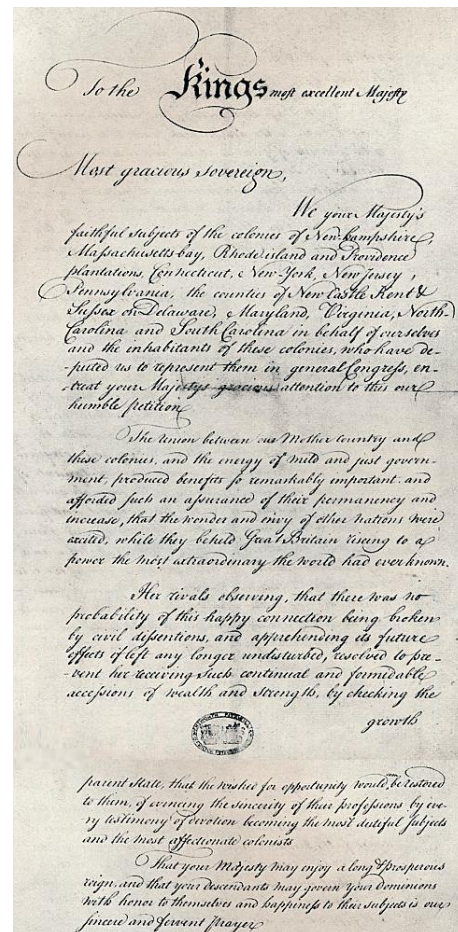 To the Kings most excellent Majesty
Most gracious Sovereign,
We your Majesty's
faithful subjects of the colonies of New-hampshire,
Massachusetts-bay, Rhode island and Providence
plantations, Connecticut, New-York, New Jersey,
Pennsylvania, the counties of New Castle Kent &
Sussex on Delaware, Maryland, Virginia, North-
Carolina and South Carolina in behalf of ourselves
and the inhabitants of these colonies, who have de-
-puted us to represent them in general Congress, en-
-treat your Majestys gracious attention to this our
humble petition
The union between our Mother Country and
these colonies, and the energy of mild and just govern-
ment, produced benefits so remarkably important, and
afforded such an assurance of their permanency and
increase, that the wonder and envy of other nations were
excited, while they beheld Great Britain rising to a
power the most extraordinary the world had ever known.
Her rivals observing, that there was no
probability of this happy connection being broken
by civil dissentions, and apprehending its future
effects if left any longer undisturbed, resolved to pre-
-vent her receiving such continual and formidable
accessions of wealth and strength, by checking the
growth
parent State, that the wished for opportunity would be restored
to them, of evincing the sincerity of their professions by eve-
ry testimony of devotion becoming the most dutiful subjects
and the most affectionate colonists
That your Majesty may enjoy a long & prosperous
reign, and that your descendants may govern your dominions
with honor to themselves and happiness to their subjects is our
sincere and fervent prayer